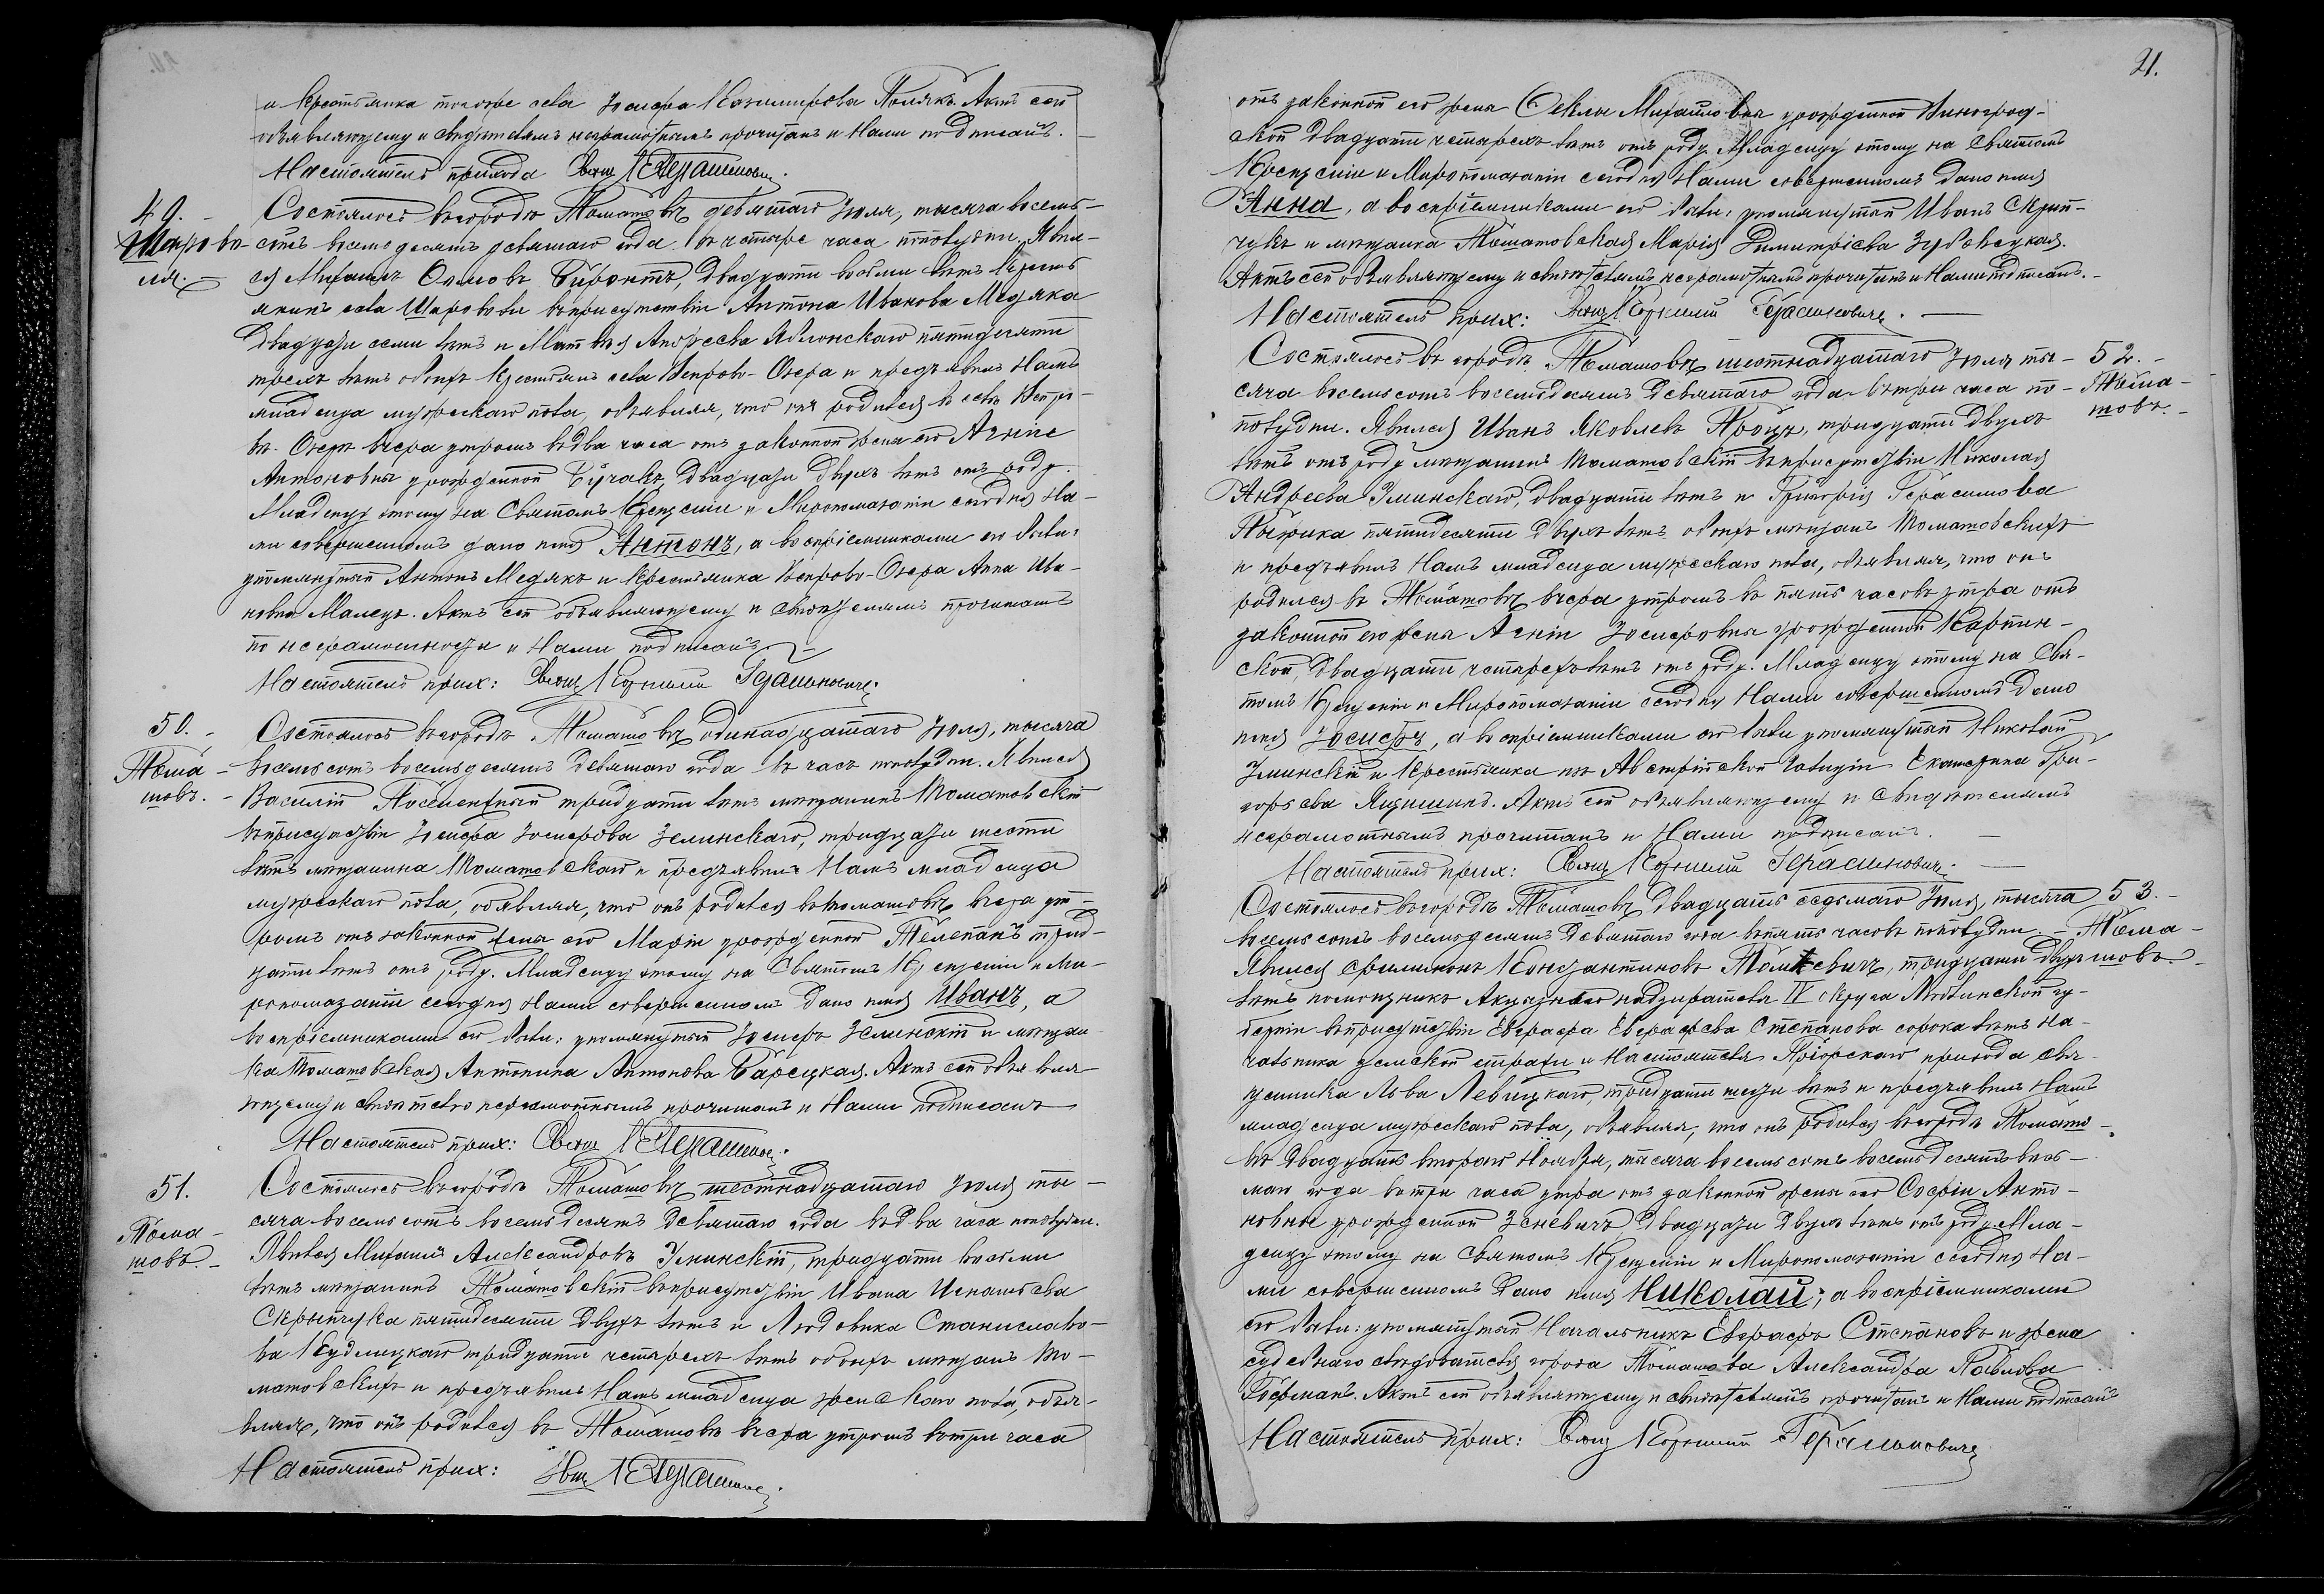 и крестьянка тогоже села Іосифа Казимирова Полякъ. Актъ сей
объявляющему и свидѣтелямъ неграмотнымъ прочитанъ и Нами подписанъ. –
Настоятель прихода Свящ
49. –
Шарово-
ля. –
Состоялось въ городѣ Томашовѣ девятаго Іюля, тысяча восемь-
сотъ восемьдесятъ девятаго года въ четыре часа пополудни. Явил-
ся Михаилъ Биронтъ, двадцати восьми лѣтъ крестья-
янинъ села Шароволи въ присутствіи Антона Иванова Медяка
двадцати семи лѣтъ и Матвѣя Андреева Яблонскаго пятидесяти
трехъ лѣтъ обоихъ крестьянъ села Вепрово-Озера и предъявилъ Намъ
младенца мужескаго пола, объявляя, что онъ родился въ селѣ Вепро-
вѣ-Озерѣ вчера утромъ въ два часа отъ законной жены его Агніи
Антоновны урожденной двадцати двухъ лѣтъ отъ роду.
Младенцу этому на Святомъ Крещеніи и Миропомазаніи сегодня На-
ми совершенномъ дано имя Антонъ, а воспріемниками его были:
упомянутый Антонъ Медякъ и крестьянка Вепрово-Озера Анна Ива-
нова Малецъ. Актъ сей объявляющему и свидѣтелямъ прочитанъ
по неграмотности и Нами подписанъ. –
Настоятель прих: Свящ Корнилій Герасимовичъ.
50. –
Тома-
шовъ. –
Состоялось въ городѣ Томашовѣ одинадцатаго Іюля, тысяча
восемьсотъ восемьдесятъ девятаго года въ часъ пополудни. Явился
Василій тридцати лѣтъ мѣщанинъ Томашовскій
въ присутствіи Іосифа Іосифова Зелинскаго, тридцати шести
лѣтъ мѣщанина Томашовскаго и предъявилъ Намъ младенца
мужескаго пола, объявляя, что онъ родился въ Томашовѣ вчера ут-
ромъ отъ законной жены его Маріи урожденной Телепанъ трид-
цати лѣтъ отъ роду. Младенцу этому на Святомъ Крещеніи и Ми-
ропомазаніи сегодня Нами совершенномъ дано имя Иванъ, а
воспріемниками его были: упомянутый Іосифъ Зелинскій и мѣщан-
ка Томашовская Антонина Антонова Барецкая. Актъ сей объявля-
ющему и свидѣтелю неграмотнымъ прочитанъ и Нами подписанъ
Настоятель прих: Свящ
51.
Тома-
шовъ. –
Состоялось въ городѣ Томашовѣ шестнадцатаго Іюля ты-
сяча восемьсотъ восемьдесятъ девятаго года въ два часа пополудни.
Явился Михаилъ Александровъ Зминскій, тридцати восьми
лѣтъ мѣщанинъ Томашовскій въ присутствіи Ивана Игнатьева
Скрыпчука пятидесяти двухъ лѣтъ и Людовика Станиславо-
ва Кудлицкаго тридцати четырехъ лѣтъ обоихъ мѣщанъ То-
машовскихъ и предъявилъ Намъ младенца женскаго пола, объя-
вляя, что онъ родился въ Томашовѣ вчера утромъ въ три часа
Настоятель прих: Свящ
21.
отъ законной его жены Феклы Михайловны урожденной Виноград-
ской двадцати четырехъ лѣтъ отъ роду. Младенцу этому на Святомъ
Крещеніи и Миропомазаніи сегодня Нами совершенномъ дано имя
Анна, а воспріемниками его были: упомянутый Иванъ Скрып-
чукъ и мѣщанка Томашовская Марія Димитріева
Актъ сей объявляющему и свидѣтелямъ неграмотнымъ прочитанъ и Нами подписанъ. –
Настоятель прих: Свящ Корнилій Герасимовичъ. –
52. –
Тома-
шовъ. –
Состоялось въ городѣ Томашовѣ шестнадцатаго Іюля ты-
сяча восемьсотъ восемьдесятъ девятаго года въ три часа по-
полудни. Явился Иванъ Яковлевъ Троцъ, тридцати двухъ
лѣтъ отъ роду мѣщанинъ Томашовскій въ присутствіи Николая
Андреева Зминскаго, двадцати лѣтъ и Григорія Герасимова
пятидесяти двухъ лѣтъ обоихъ мѣщанъ Томашовскихъ
и предъявилъ Намъ младенца мужескаго пола, объявляя, что онъ
родился въ Томашовѣ вчера утромъ въ пять часовъ утра отъ
законной его жены Агніи Іосифовны урожденной Карпин-
ской, двадцати четырехъ лѣтъ отъ роду. Младенцу этому на Свя-
томъ Крещеніи и Миропомазаніи сегодня Нами совершенномъ дано
имя Іосифъ, а воспріемниками его были упомянутый Николай
Зминскій и крестьянка изъ Австрійской Галиціи Екатерина Гри-
горьева Яцишинъ. Актъ сей объявляющему и свидѣтелямъ
неграмотнымъ прочитанъ и Нами подписанъ. –
Настоятель прих: Свящ Корнилій Герасимовичъ. –
53. –
Тома-
шовъ. –
Состоялось въ городѣ Томашовѣ двадцать седьмаго Іюля, тысяча
восемьсотъ восемьдесятъ девятаго года въ пять часовъ пополудни. –
Явился Филимонъ Константиновъ тридцати двухъ
лѣтъ помощникъ Акцизнаго надзирателя IV округа Люблинской гу-
берніи въ присутствіи Евграфа Евграфова Степанова сорока лѣтъ На-
чальника земской стражи и Настоятеля прихода Свя-
щенника Льва Левицкаго, тридцати шести лѣтъ и предъявилъ Намъ
младенца мужескаго пола, объявляя, что онъ родился въ городѣ Томашо-
вѣ двадцать втораго Ноября, тысяча восемьсотъ восемьдесятъ вось-
маго года въ три часа утра отъ законной жены его Софіи Анто-
новны урожденной Зеневичъ двадцати двухъ лѣтъ отъ роду. Мла-
денцу этому на Святомъ Крещеніи и Миропомазаніи сегодня На-
ми совершенномъ дано имя Николай; а воспріемниками
его были: упомянутый Начальникъ Евграфъ Степановъ и жена
судебнаго слѣдователя города Томашова Александра Павлова
Гофманъ. Актъ сей объявляющему и свидѣтелямъ прочитанъ и Нами подписанъ
Настоятель прих: Свящ Корнилій Герасимовичъ